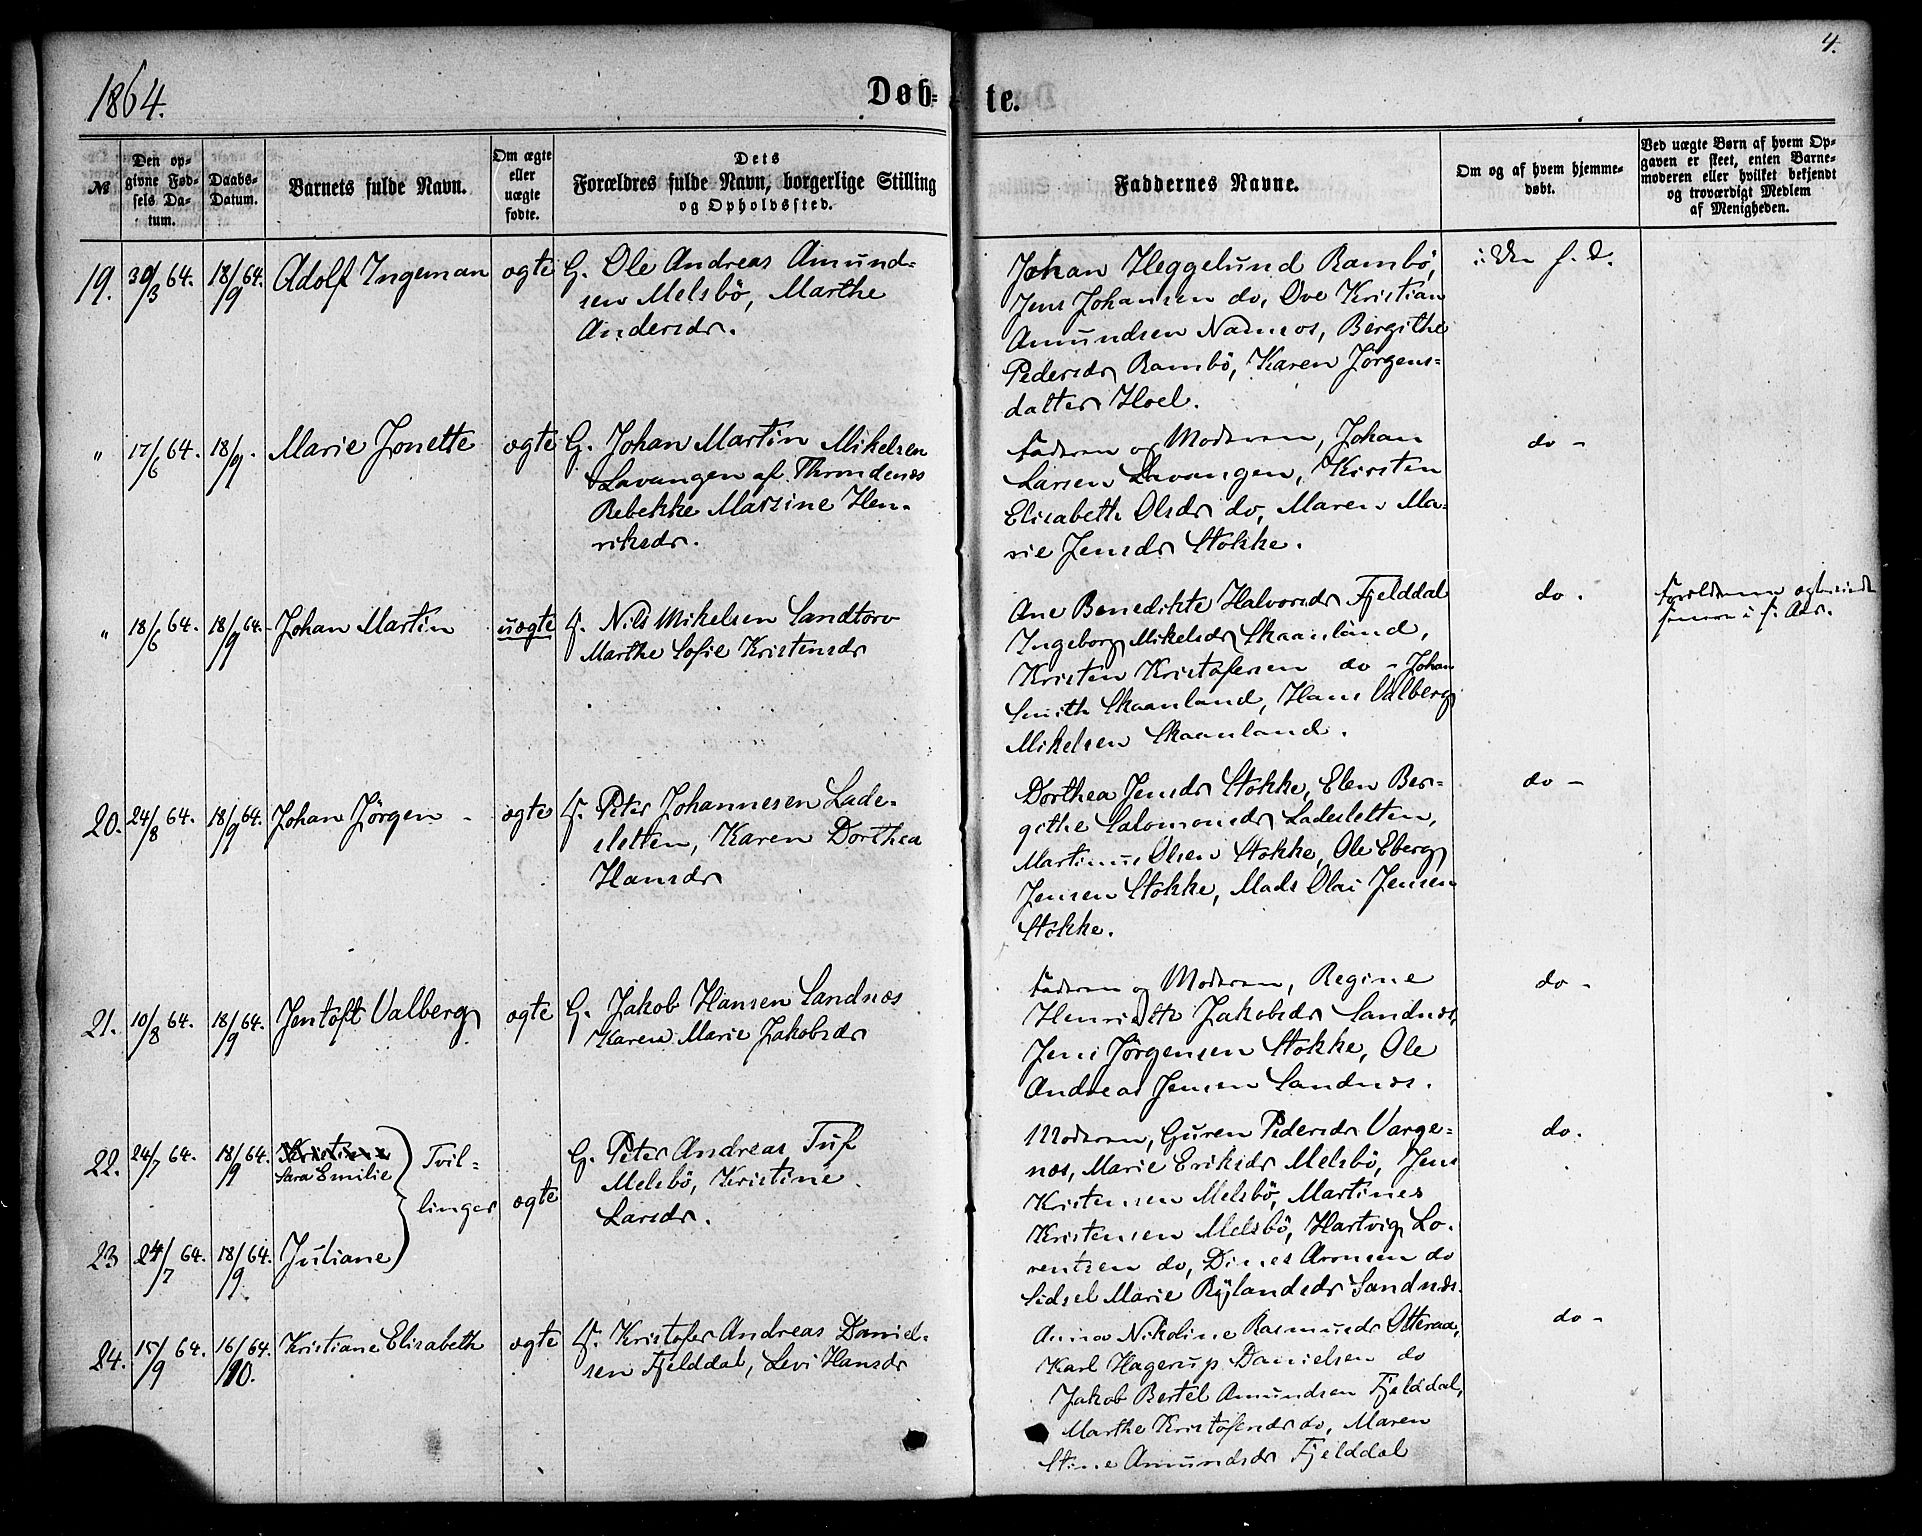 4.
1864.
Døb- te.
№
Den opgivne Fødsels Datum.
Daabs-Datum.
Barnets fulde Navn.
Om ægte eller uægte fødte.
Dets Forældres fulde Navn, borgerlige Stilling og Opholdssted.
Faddernes Navne.
Om og af hvem hjemmedøbt.
Ved uægte Børn af hvem Opgaven er skeet, enten Barnemoderen eller hvilket bekjendt og troværdigt Medlem af Menigheden.
19. 30/3 64. 18/9 64. Adolf Ingeman ægte G. Ole Andreas Amund-
sen Melsbö, Marthe
Andersdr.
Johan Heggelund Rambö,
Jens Johansen do, Ove Kristian
Amundsen Namsos, Bergithe
Pedersdr Rambö, Karen Jörgens-
datter Hoel.
f. D.
" 17/6 64. 18/9. Marie Jonette ægte G. Johan Martin Mikelsen
Lavangen af Throndenæs
Rebekke Marsine Hen-
riksdr.
Faderen og Moderen, Johan
Larsen Lavangen, Kirsten
Elisabeth Olsdr do, Maren Ma-
rie Jensdr Stokke.
do -
" 18/6 64. 18/9 64. Johan Martin uægte F. Nils Mikelsen Sandtorv
Marthe Sofie Kristensdr
Ane Benedikte Halvorsdr Fjelddal
Ingeborg Mikelsdr Skaanland,
Kristen Kristofersen do - Johan
Smith Skaanland, Hans Valberg
Mikelsen Skaanland.
do.
Forældrene
20. 24/8 64. 18/9 64. Johan Jörgen - ægte F. Peter Johannesen Lade-
sletten, Karen Dorthea
Hansdr
Dorthea Jensdr Stokke, Elen Ber-
githe Salomonsdr Ladesletten,
Martinus Olsen Stokke, Ole Eberg
Jensen Stokke, Mads Olai Jensen
Stokke.
do -
21. 10/8 64. 18/9 64. Jentoft Valberg ægte G. Jakob Hansen Sandnæs
Karen Marie Jakobsdr
Faderen og Moderen, Regine
Henriette Jakobsdr Sandnæs,
Jens Jörgensen Stokke, Ole
Andreas Jensen Sandnæs.
do -
22. 24/7 64. 18/9 64. Kristine
Sara Emilie Tvil-
linger ægte G. Peter Andreas Tuf
Melsbö, Kristine
Larsdr.
23 24/7 64. 18/9 64. Juliane
Moderen, Guren Pedersdr Varge-
næs, Marie Eriksdr Melsbö, Jens
Kristensen Melsbö, Martines
Kristensen Melsbö, Hartvig Lo-
rentsen do, Dines Aronsen do
Sidsel Marie Rylandsdr Sandnæs.
do.
24. 15/9 64. 16/10 64. Kristiane Elisabeth ægte F. Kristofer Andreas Daniel-
sen Fjelddal, Levi Hansdr
Anna Nikoline Rasmusdr Otteraa,
Karl Hagerup Danielsen do
Jakob Bertel Amundsen Fjelddal,
Marthe Kristofersdr do, Maren
Stine Amundsdr Fjelddal
do -